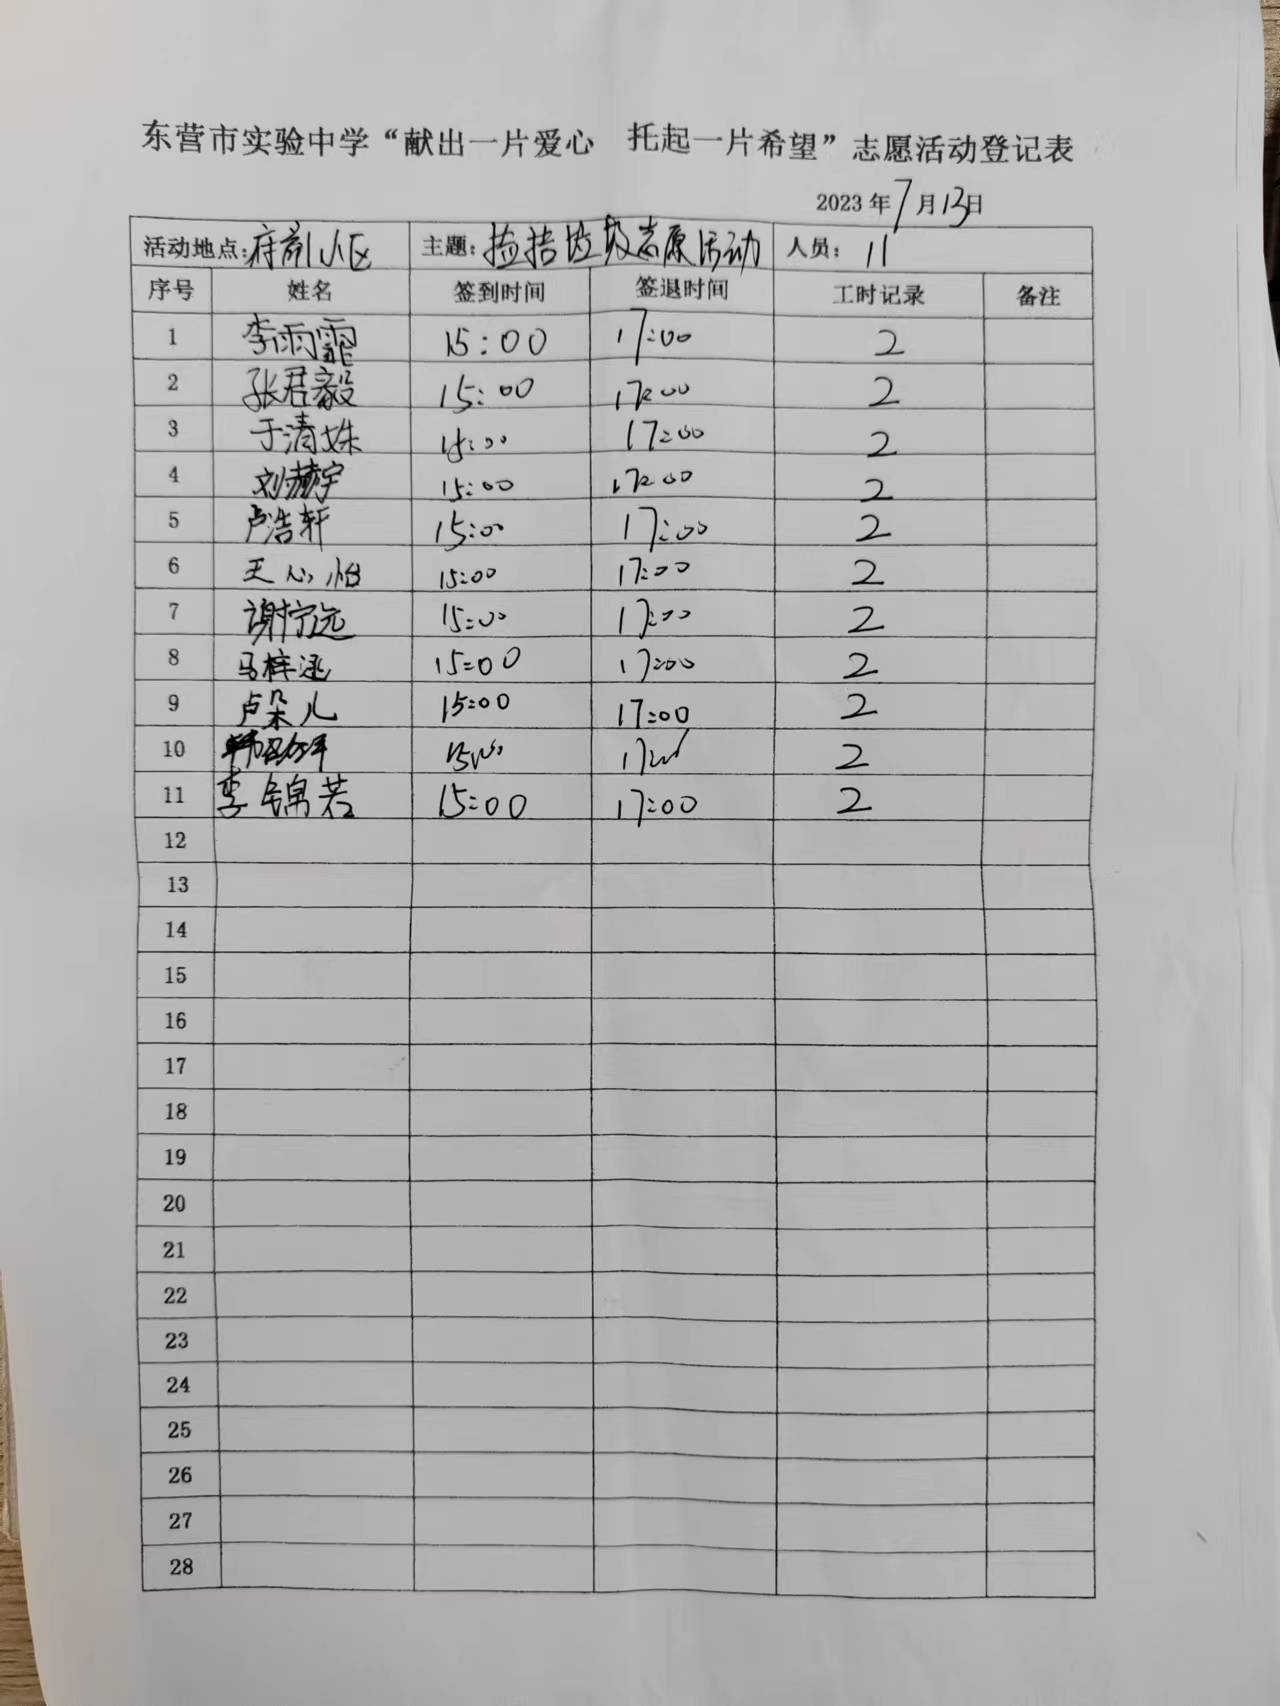 东营市实验中学“献出一片爱心 托起一片希望”志愿活动登记表
2023年7月13日
活动地点:府前小区 主题:捡拾垃圾志原活动 人员: 11
序号 姓名 签到时间 签退时间 工时记录 备注
1 李雨霏 15:00 17:00 2
2 张君毅 15:00 17:00 2
3 于清姝 15:00 17:00 2
4 刘赫宇 15:00 17:00 2
5 卢浩轩 15:00 17:00 2
6 王心怡 15:00 17:00 2
7 谢拧远 15:00 17:00 2
8 马梓涵 15:00 17:00 2
9 卢朵儿 15:00 17:00 2
10 15:00 17:00 2
11 李锦若 15:00 17:00 2
12
13
14
15
16
17
18
19
20
21
22
23
24
25
26
27
28